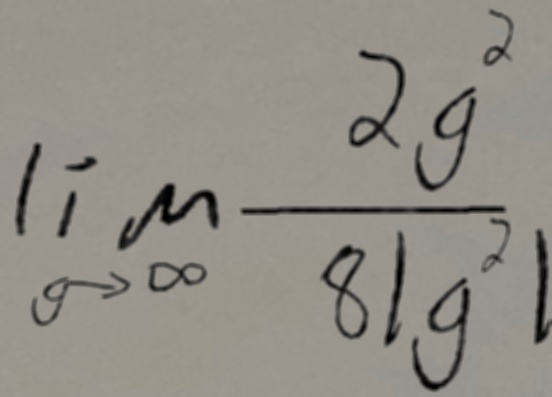 \lim_{g \to \infty} \frac{2g^2}{8|g^2|}